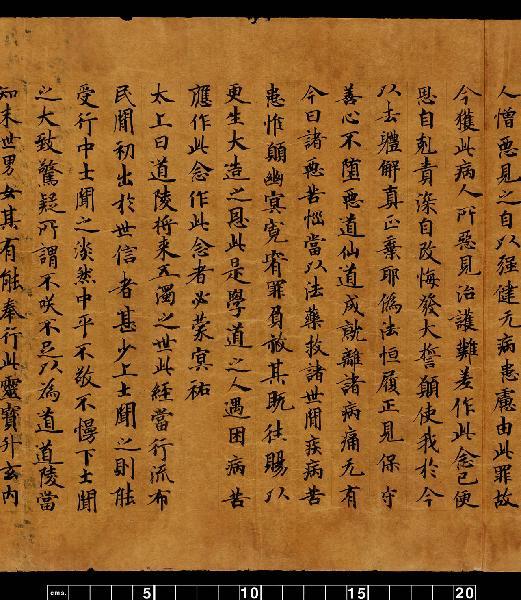 人憎惡見之自以强健无病患處由此罪故
今獲此病人所惡見治護難差作此念已便
思自剋責深自改悔發大誓願使我於今
以去體解真正棄耶僞法恒履正見保守
善心不墮惡道仙道成就離諸病痛无有
今日諸惡苦惱當以法藥救諸世間疾病苦
患惟願幽冥寬宥罪負赦其既往賜以
更生大造之恩此是學道之人遇困病苦
應作此念作此念者必蒙冥祐
太上曰道陵將來五濁之世此經當行流布
民間初出於世信者甚少上士聞之則能
受行中士聞之淡然中平不敬不慢下士聞
之大致驚疑所謂不咲不足以為道道陵當
知末世男女其有能奉行此靈寶升玄內